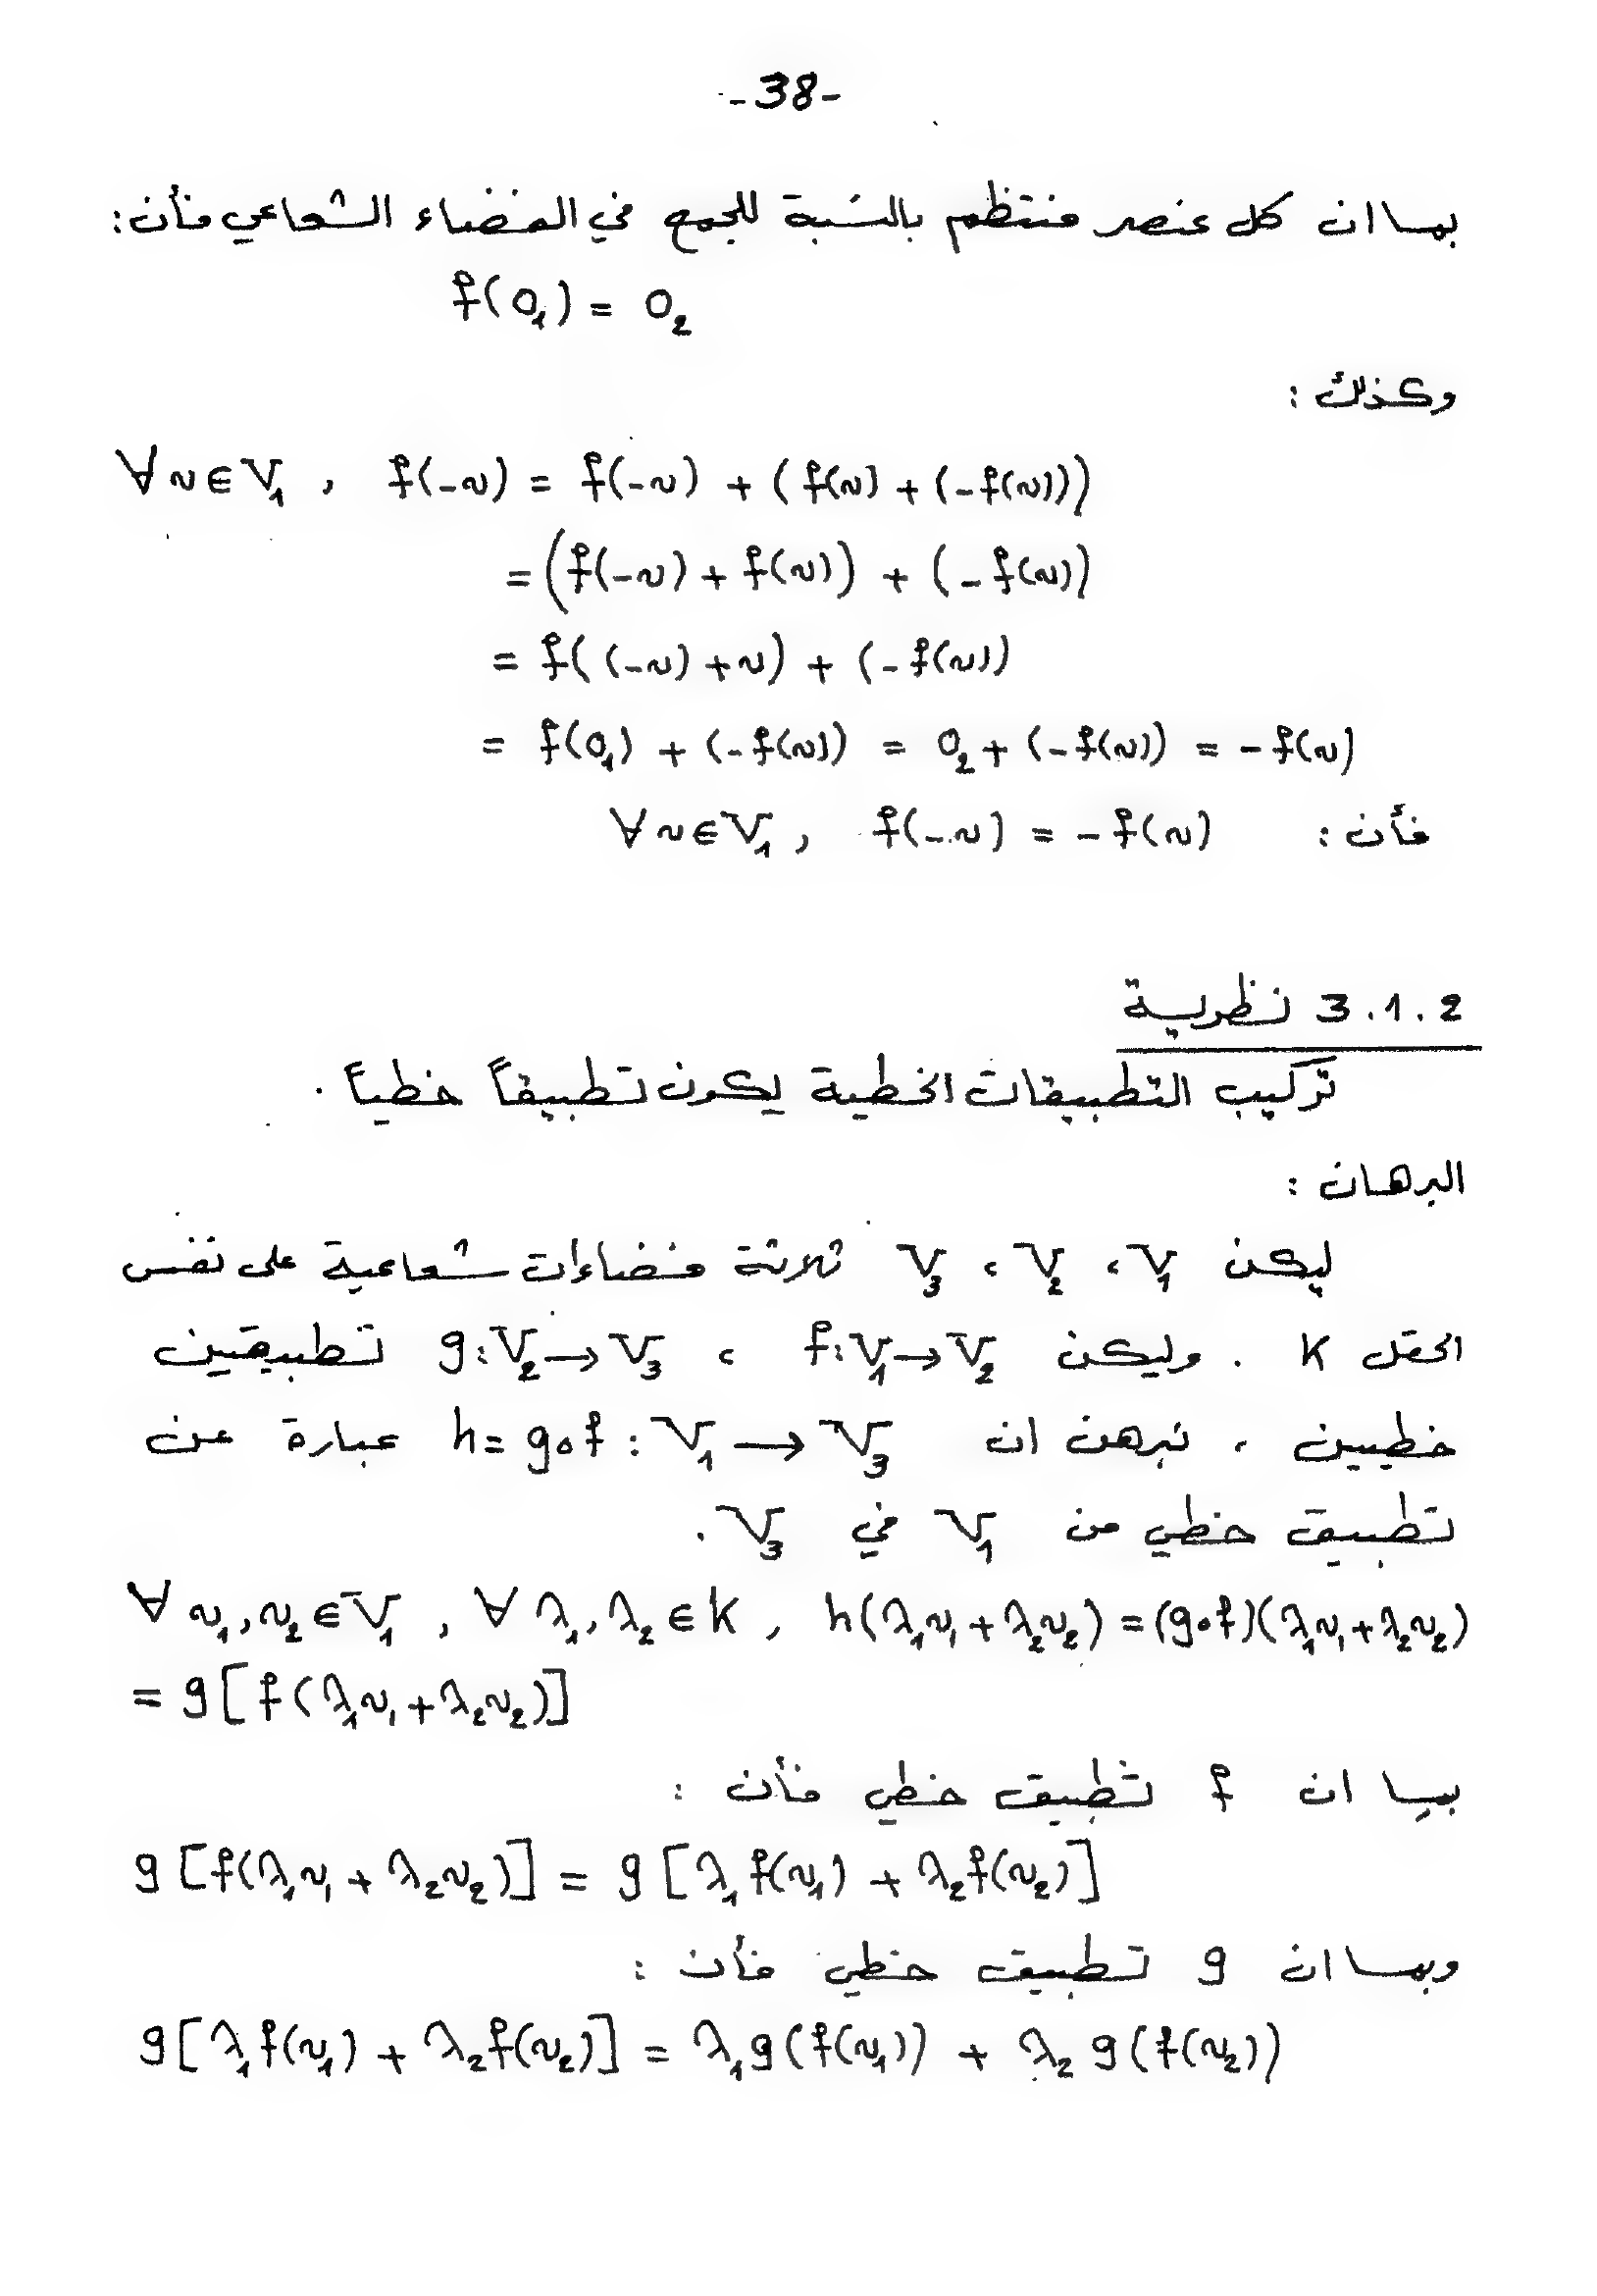 -38-
بما ان كل عنصر منتظم بالنسبة للجمع في الفضاء الشعاعي فأن:
f(0₁) = 0₂
وكذلك :
∀ v ∈ V₁ , f(-v) = f(-v) + (f(v) + (-f(v)))
= (f(-v) + f(v)) + (-f(v))
= f((-v) + v) + (-f(v))
= f(0₁) + (-f(v)) = 0₂ + (-f(v)) = -f(v)
فأن : ∀ v ∈ V₁ , f(-v) = -f(v)
3.1.2 نظرية
تركيب التطبيقات الخطية يكون تطبيقاً خطياً .
البرهان :
ليكن V₁ ، V₂ ، V₃ ثلاثة فضاءات شعاعية على نفس
الحقل K . وليكن f: V₁ → V₂ ، g: V₂ → V₃ تطبيقين
خطيين ، نبرهن ان h = g∘f : V₁ → V₃ عبارة عن
تطبيق خطي من V₁ في V₃ .
∀ v₁, v₂ ∈ V₁ , ∀ λ₁, λ₂ ∈ K , h(λ₁v₁ + λ₂v₂) = (g∘f)(λ₁v₁ + λ₂v₂)
= g[f(λ₁v₁ + λ₂v₂)]
بما ان f تطبيق خطي فأن :
g[f(λ₁v₁ + λ₂v₂)] = g[λ₁f(v₁) + λ₂f(v₂)]
وبما ان g تطبيق خطي فأن :
g[λ₁f(v₁) + λ₂f(v₂)] = λ₁g(f(v₁)) + λ₂g(f(v₂))